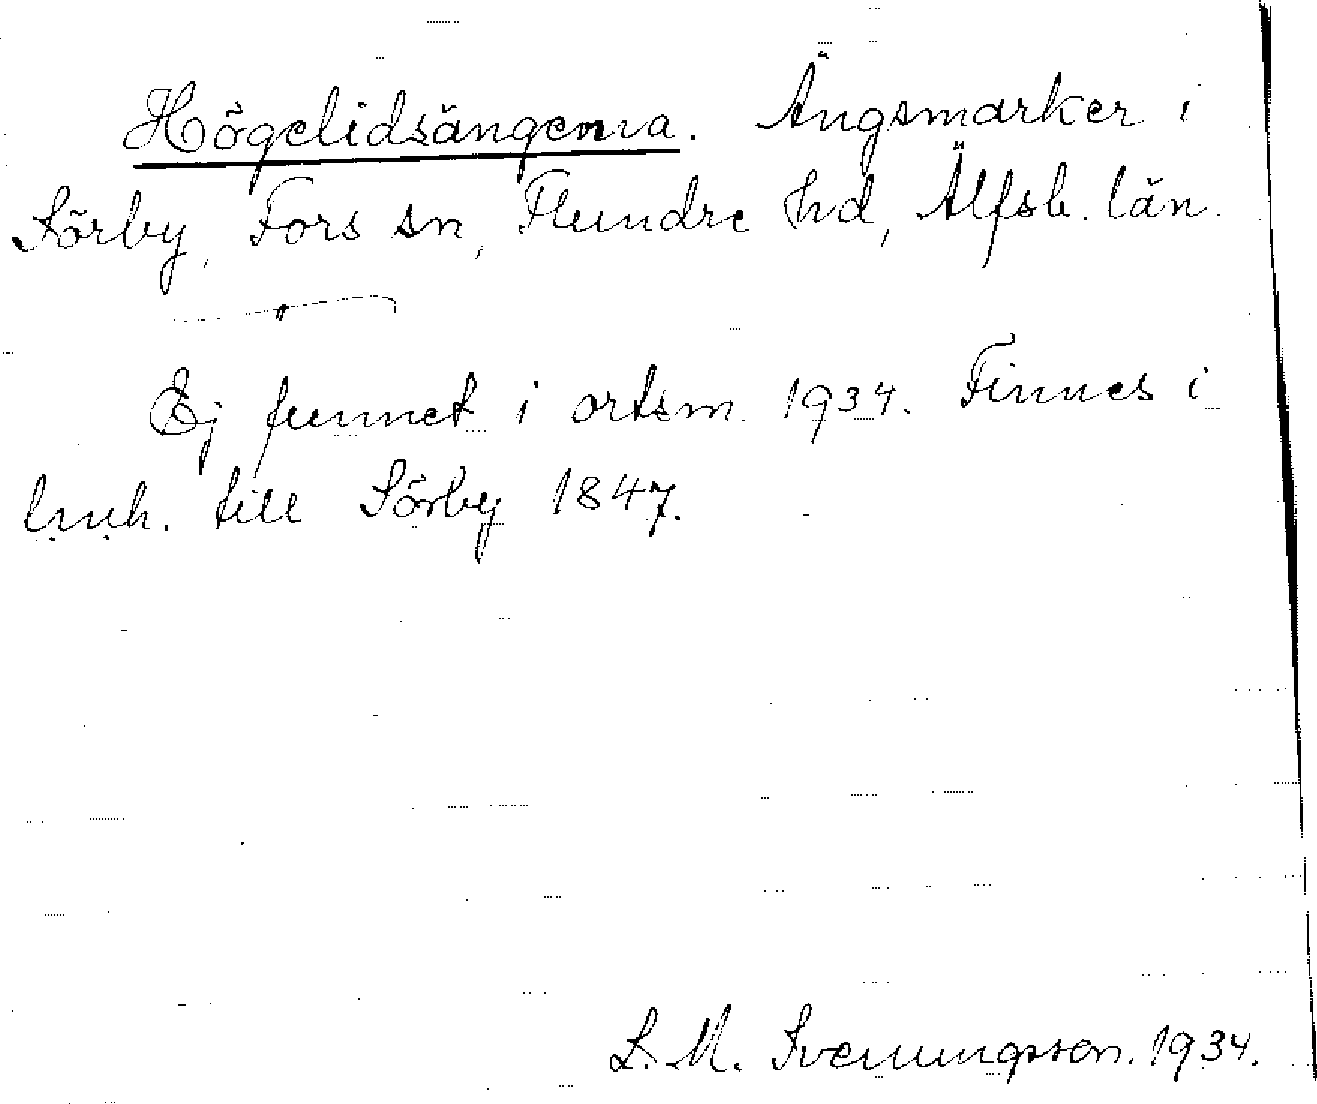 Högelidsängerna. Ängsmarker i
Sörby, Fors sn, Flundre hd, Älfsb. län.
Ej funnet i ortsm. 1934. Finnes i
till Sörby 1847.
L. M. Svenungsson. 1934.